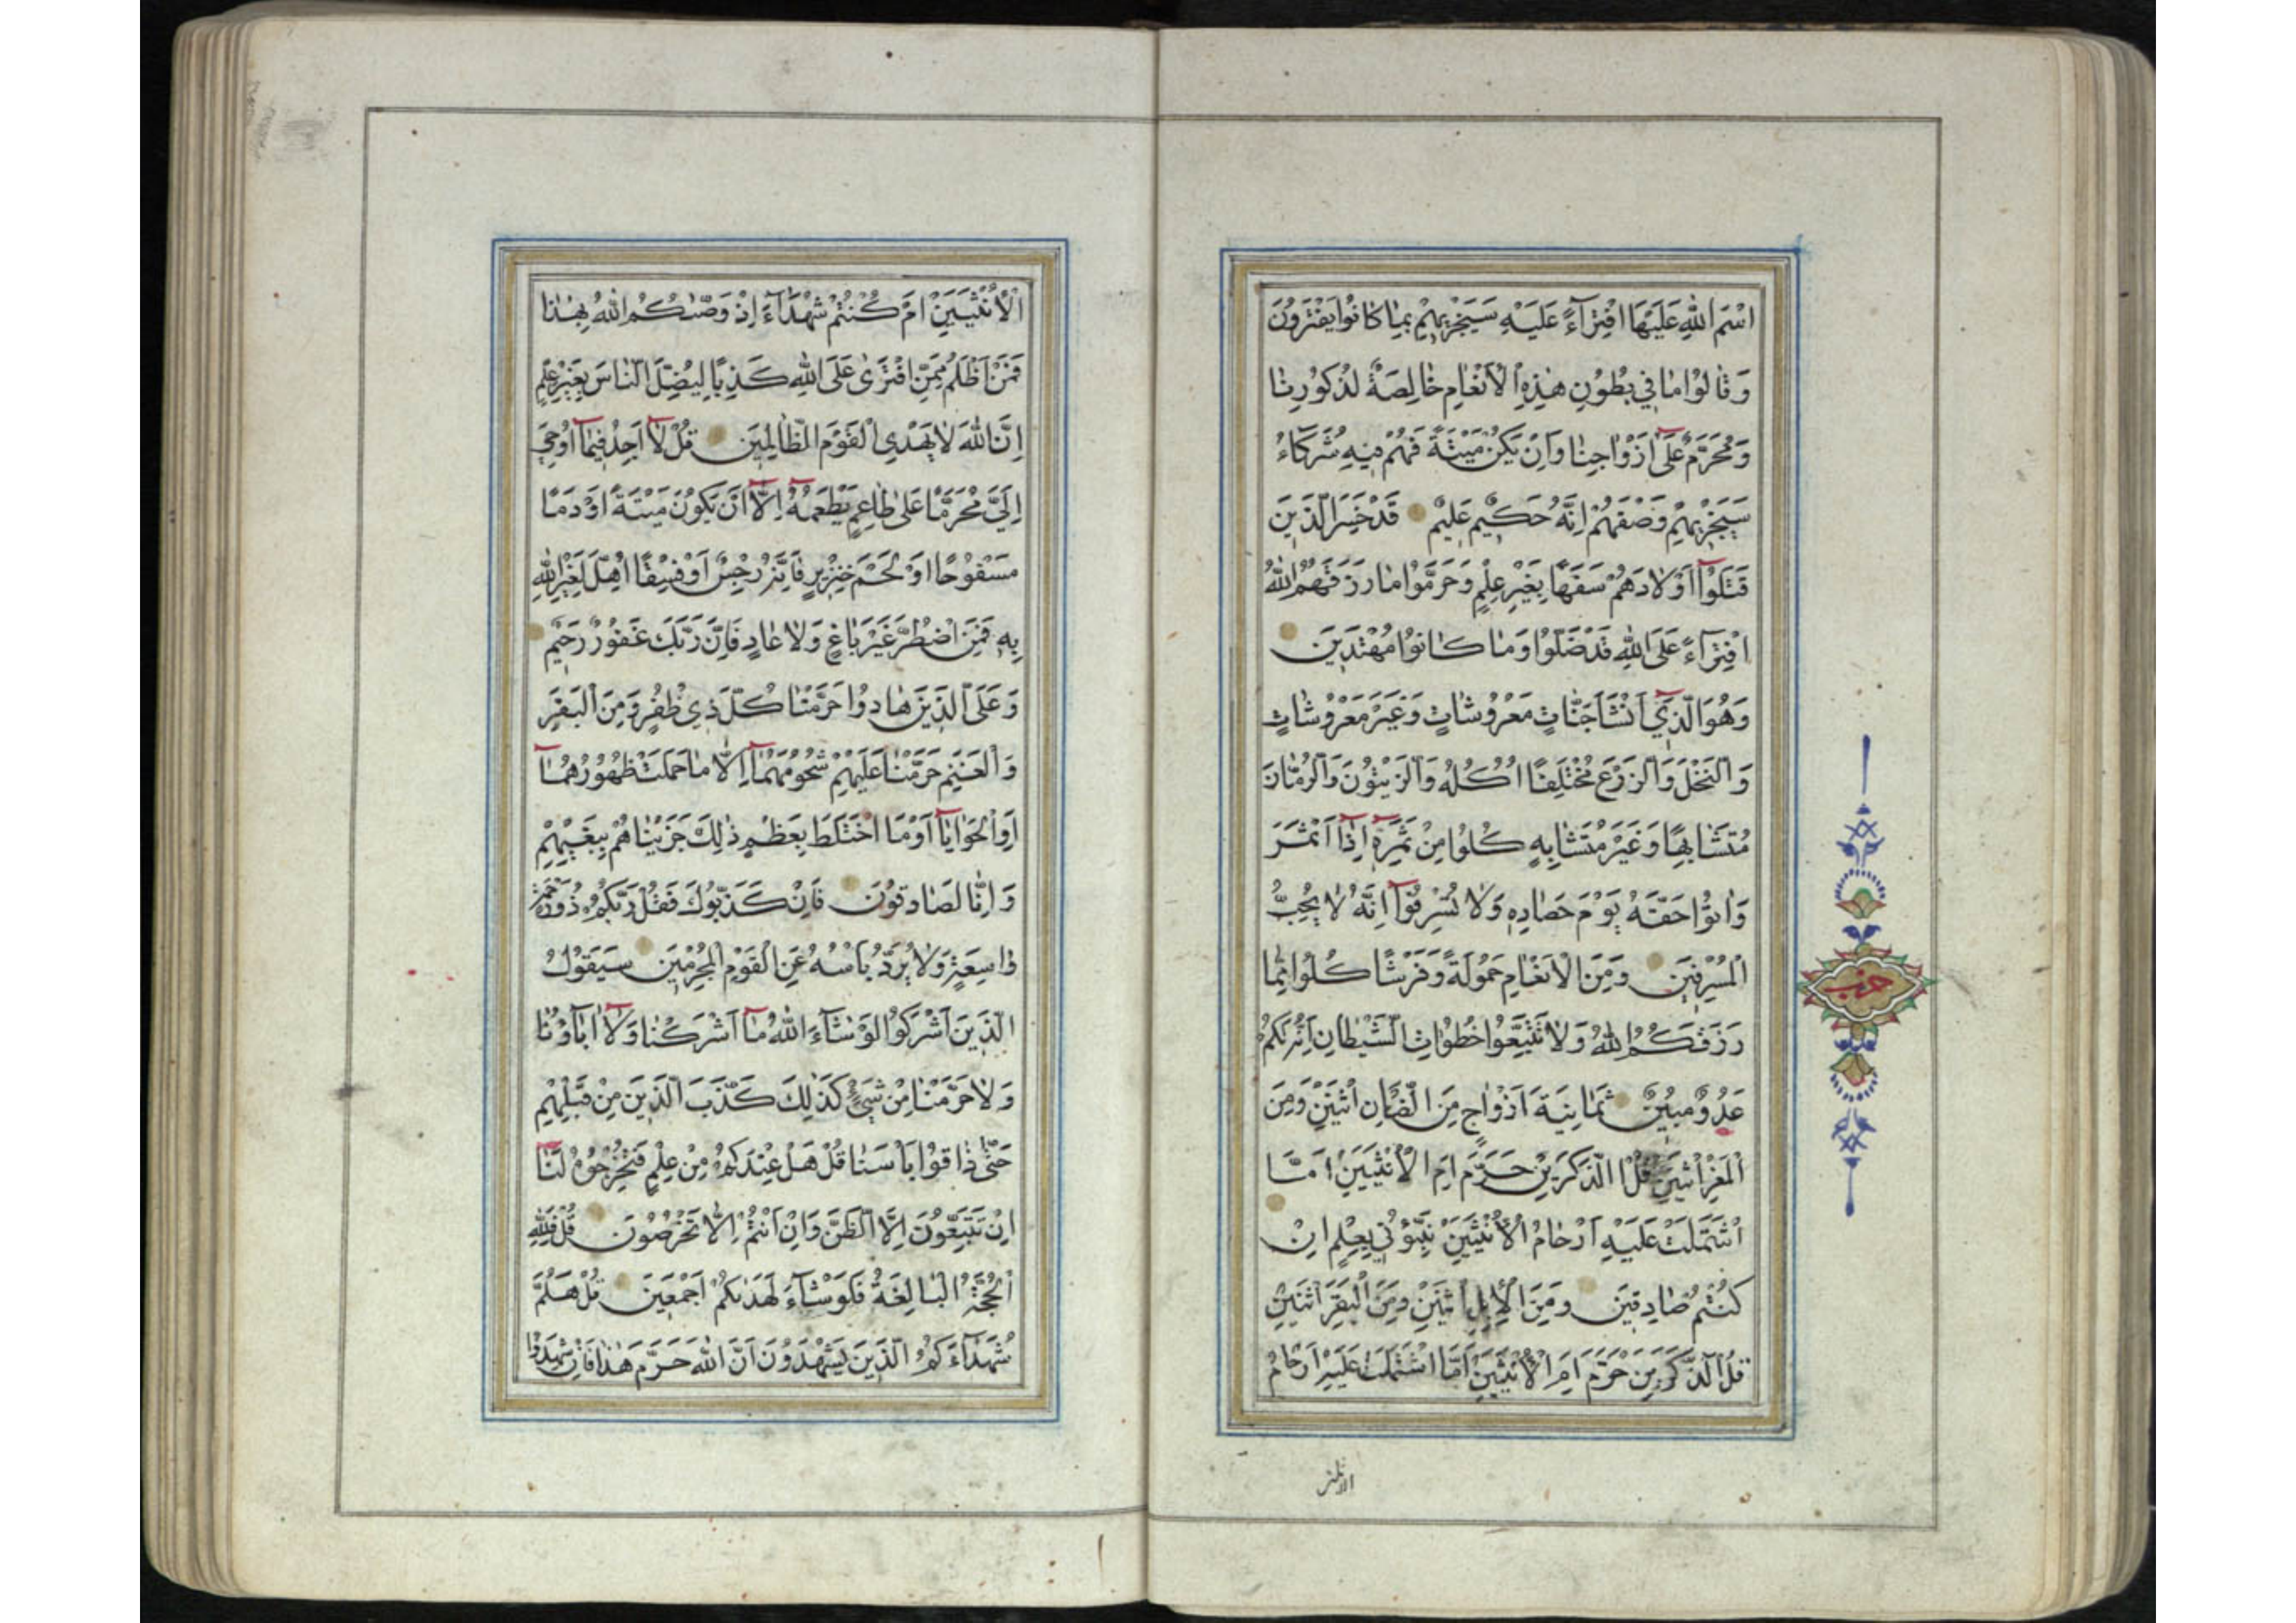 اسْمَ اللهِ عَلَيْهَا افْتِرَآءً عَلَيْهِ سَيَجْزِيهِمْ بِمَا كَانُوا يَفْتَرُونَ
وَقَالُوا مَا فِي بُطُونِ هٰذِهِ الْاَنْعَامِ خَالِصَةٌ لِذُكُورِنَا
وَمُحَرَّمٌ عَلٰٓى اَزْوَاجِنَا وَاِنْ يَكُنْ مَيْتَةً فَهُمْ فِيهِ شُرَكَآءُ
سَيَجْزِيهِمْ وَصْفَهُمْ اِنَّهُ حَكِيمٌ عَلِيمٌ قَدْ خَسِرَ الَّذِينَ
قَتَلُوٓا اَوْلَادَهُمْ سَفَهًا بِغَيْرِ عِلْمٍ وَحَرَّمُوا مَا رَزَقَهُمُ اللهُ
افْتِرَآءً عَلَى اللهِ قَدْ ضَلُّوا وَمَا كَانُوا مُهْتَدِينَ
وَهُوَ الَّذِيٓ اَنْشَاَ جَنَّاتٍ مَعْرُوشَاتٍ وَغَيْرَ مَعْرُوشَاتٍ
وَالنَّخْلَ وَالزَّرْعَ مُخْتَلِفًا اُكُلُهُ وَالزَّيْتُونَ وَالرُّمَّانَ
مُتَشَابِهًا وَغَيْرَ مُتَشَابِهٍ كُلُوا مِنْ ثَمَرِهِٓ اِذَٓا اَثْمَرَ
وَاٰتُوا حَقَّهُ يَوْمَ حَصَادِهِ وَلَا تُسْرِفُوٓا اِنَّهُ لَا يُحِبُّ
الْمُسْرِفِينَ وَمِنَ الْاَنْعَامِ حَمُولَةً وَفَرْشًا كُلُوا مِمَّا
رَزَقَكُمُ اللهُ وَلَا تَتَّبِعُوا خُطُوَاتِ الشَّيْطَانِ اِنَّهُ لَكُمْ
عَدُوٌّ مُبِينٌ ثَمَانِيَةَ اَزْوَاجٍ مِنَ الضَّاْنِ اثْنَيْنِ وَمِنَ
الْمَعْزِ اثْنَيْنِ قُلْ آلذَّكَرَيْنِ حَرَّمَ اَمِ الْاُنْثَيَيْنِ اَمَّا
اشْتَمَلَتْ عَلَيْهِ اَرْحَامُ الْاُنْثَيَيْنِ نَبِّؤُنِي بِعِلْمٍ اِنْ
كُنْتُمْ صَادِقِينَ وَمِنَ الْاِبِلِ اثْنَيْنِ وَمِنَ الْبَقَرِ اثْنَيْنِ
قُلْ آلذَّكَرَيْنِ حَرَّمَ اَمِ الْاُنْثَيَيْنِ اَمَّا اشْتَمَلَتْ عَلَيْهِ اَرْحَامُ
حزب
الْاُنْثَيَيْنِ اَمْ كُنْتُمْ شُهَدَآءَ اِذْ وَصّٰىكُمُ اللهُ بِهٰذَا
فَمَنْ اَظْلَمُ مِمَّنِ افْتَرٰى عَلَى اللهِ كَذِبًا لِيُضِلَّ النَّاسَ بِغَيْرِ عِلْمٍ
اِنَّ اللهَ لَا يَهْدِي الْقَوْمَ الظَّالِمِينَ قُلْ لَٓا اَجِدُ فِيمَٓا اُوحِيَ
اِلَيَّ مُحَرَّمًا عَلٰى طَاعِمٍ يَطْعَمُهُٓ اِلَّٓا اَنْ يَكُونَ مَيْتَةً اَوْ دَمًا
مَسْفُوحًا اَوْ لَحْمَ خِنْزِيرٍ فَاِنَّهُ رِجْسٌ اَوْ فِسْقًا اُهِلَّ لِغَيْرِ اللهِ
بِهِ فَمَنِ اضْطُرَّ غَيْرَ بَاغٍ وَلَا عَادٍ فَاِنَّ رَبَّكَ غَفُورٌ رَحِيمٌ
وَعَلَى الَّذِينَ هَادُوا حَرَّمْنَا كُلَّ ذِي ظُفُرٍ وَمِنَ الْبَقَرِ
وَالْغَنَمِ حَرَّمْنَا عَلَيْهِمْ شُحُومَهُمَٓا اِلَّا مَا حَمَلَتْ ظُهُورُهُمَٓا
اَوِ الْحَوَايَٓا اَوْ مَا اخْتَلَطَ بِعَظْمٍ ذٰلِكَ جَزَيْنَاهُمْ بِبَغْيِهِمْ
وَاِنَّا لَصَادِقُونَ فَاِنْ كَذَّبُوكَ فَقُلْ رَبُّكُمْ ذُو رَحْمَةٍ
وَاسِعَةٍ وَلَا يُرَدُّ بَاْسُهُ عَنِ الْقَوْمِ الْمُجْرِمِينَ سَيَقُولُ
الَّذِينَ اَشْرَكُوا لَوْ شَآءَ اللهُ مَٓا اَشْرَكْنَا وَلَٓا اٰبَآؤُنَا
وَلَا حَرَّمْنَا مِنْ شَيْءٍ كَذٰلِكَ كَذَّبَ الَّذِينَ مِنْ قَبْلِهِمْ
حَتّٰى ذَاقُوا بَاْسَنَا قُلْ هَلْ عِنْدَكُمْ مِنْ عِلْمٍ فَتُخْرِجُوهُ لَنَا
اِنْ تَتَّبِعُونَ اِلَّا الظَّنَّ وَاِنْ اَنْتُمْ اِلَّا تَخْرُصُونَ قُلْ فَلِلّٰهِ
الْحُجَّةُ الْبَالِغَةُ فَلَوْ شَآءَ لَهَدٰىكُمْ اَجْمَعِينَ قُلْ هَلُمَّ
شُهَدَآءَكُمُ الَّذِينَ يَشْهَدُونَ اَنَّ اللهَ حَرَّمَ هٰذَا فَاِنْ شَهِدُوا